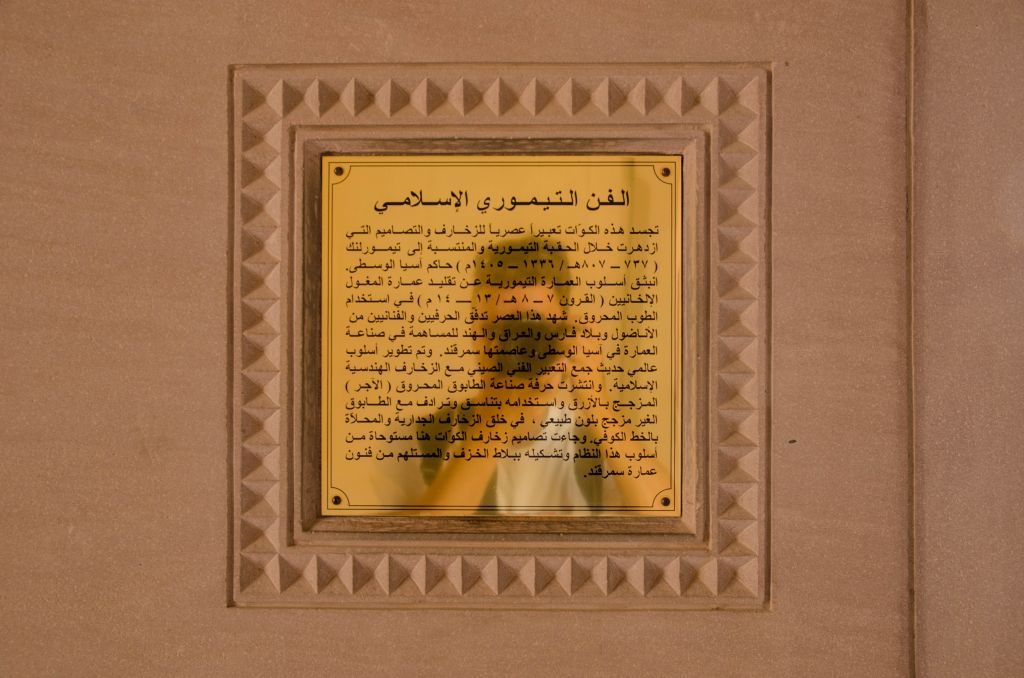 الفن التيموري الإسلامي
تجسد هذه الكوّات تعبيراً عصرياً للزخارف والتصاميم التي
ازدهرت خلال الحقبة التيمورية والمنتسبة إلى تيمورلنك
( ٧٣٧ – ٨٠٧هـ / ١٣٣٦ – ١٤٠٥م ) حاكم آسيا الوسطى.
انبثق أسلوب العمارة التيمورية عن تقليد عمارة المغول
الإلخانيين ( القرون ٧ – ٨ هـ / ١٣ – ١٤ م ) في استخدام
الطوب المحروق. شهد هذا العصر تدفق الحرفيين والفنانيين من
الأناضول وبلاد فارس والعراق والهند للمساهمة في صناعة
العمارة في آسيا الوسطى وعاصمتها سمرقند. وتم تطوير أسلوب
عالمي حديث جمع التعبير الفني الصيني مع الزخارف الهندسية
الإسلامية. وانتشرت حرفة صناعة الطابوق المحروق ( الآجر )
المزجج بالأزرق واستخدامه بتناسق وترادف مع الطابوق
الغير مزجج بلون طبيعي ، في خلق الزخارف الجدارية والمحلاة
بالخط الكوفي. وجاءت تصاميم زخارف الكوّات هنا مستوحاة من
أسلوب هذا النظام وتشكيله ببلاط الخزف والمستلهم من فنون
عمارة سمرقند.